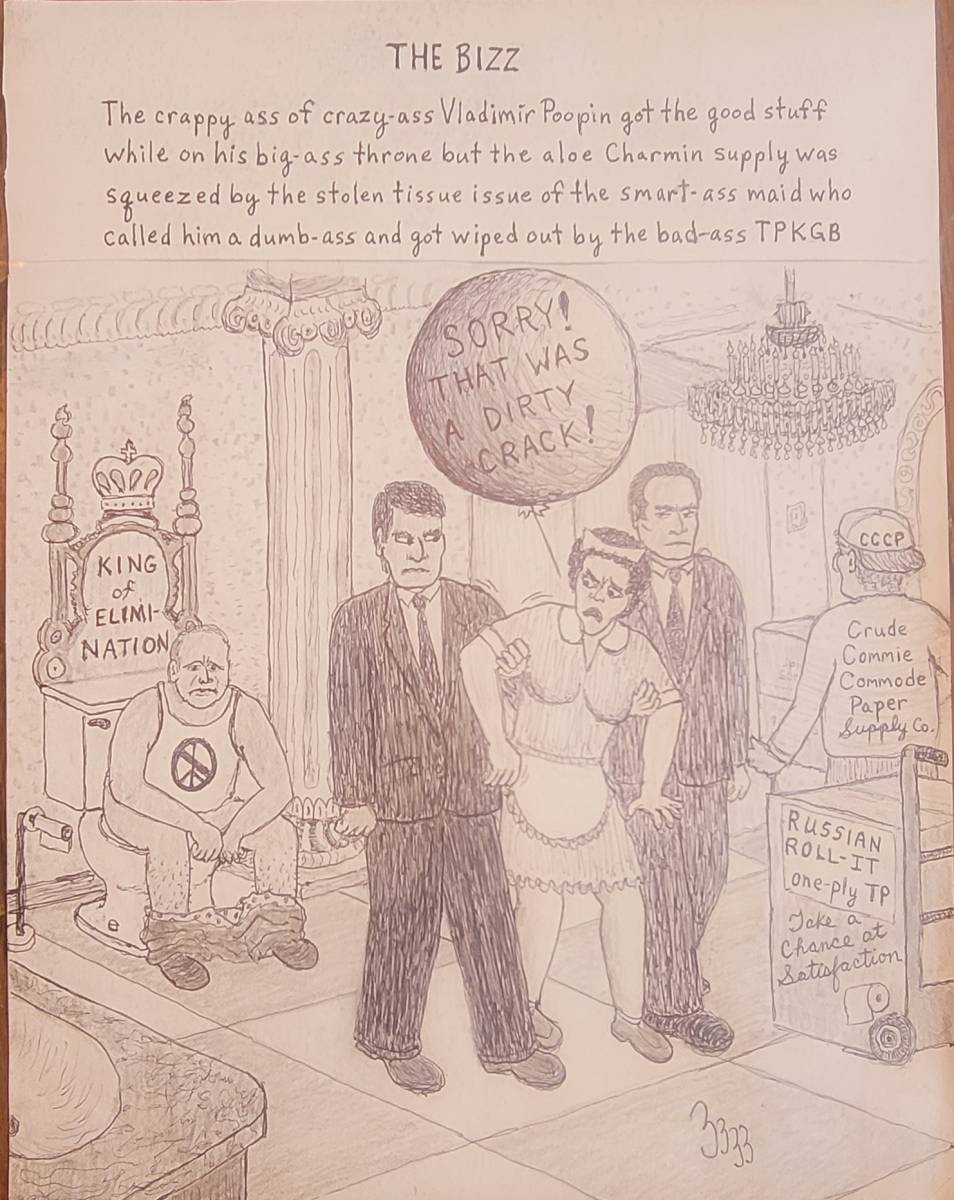 THE BIZZ
The crappy ass of crazy-ass Vladimir Poopin got the good stuff
while on his big-ass throne but the aloe Charmin supply was
squeezed by the stolen tissue issue of the smart-ass maid who
called him a dumb-ass and got wiped out by the bad-ass TPKGB
SORRY!
THAT WAS
A DIRTY
CRACK!
KING
of
ELIMI-
NATION
CCCP
Crude
Commie
Commode
Paper
Supply Co.
RUSSIAN
ROLL-IT
one-ply TP
Take a
Chance at
Satisfaction